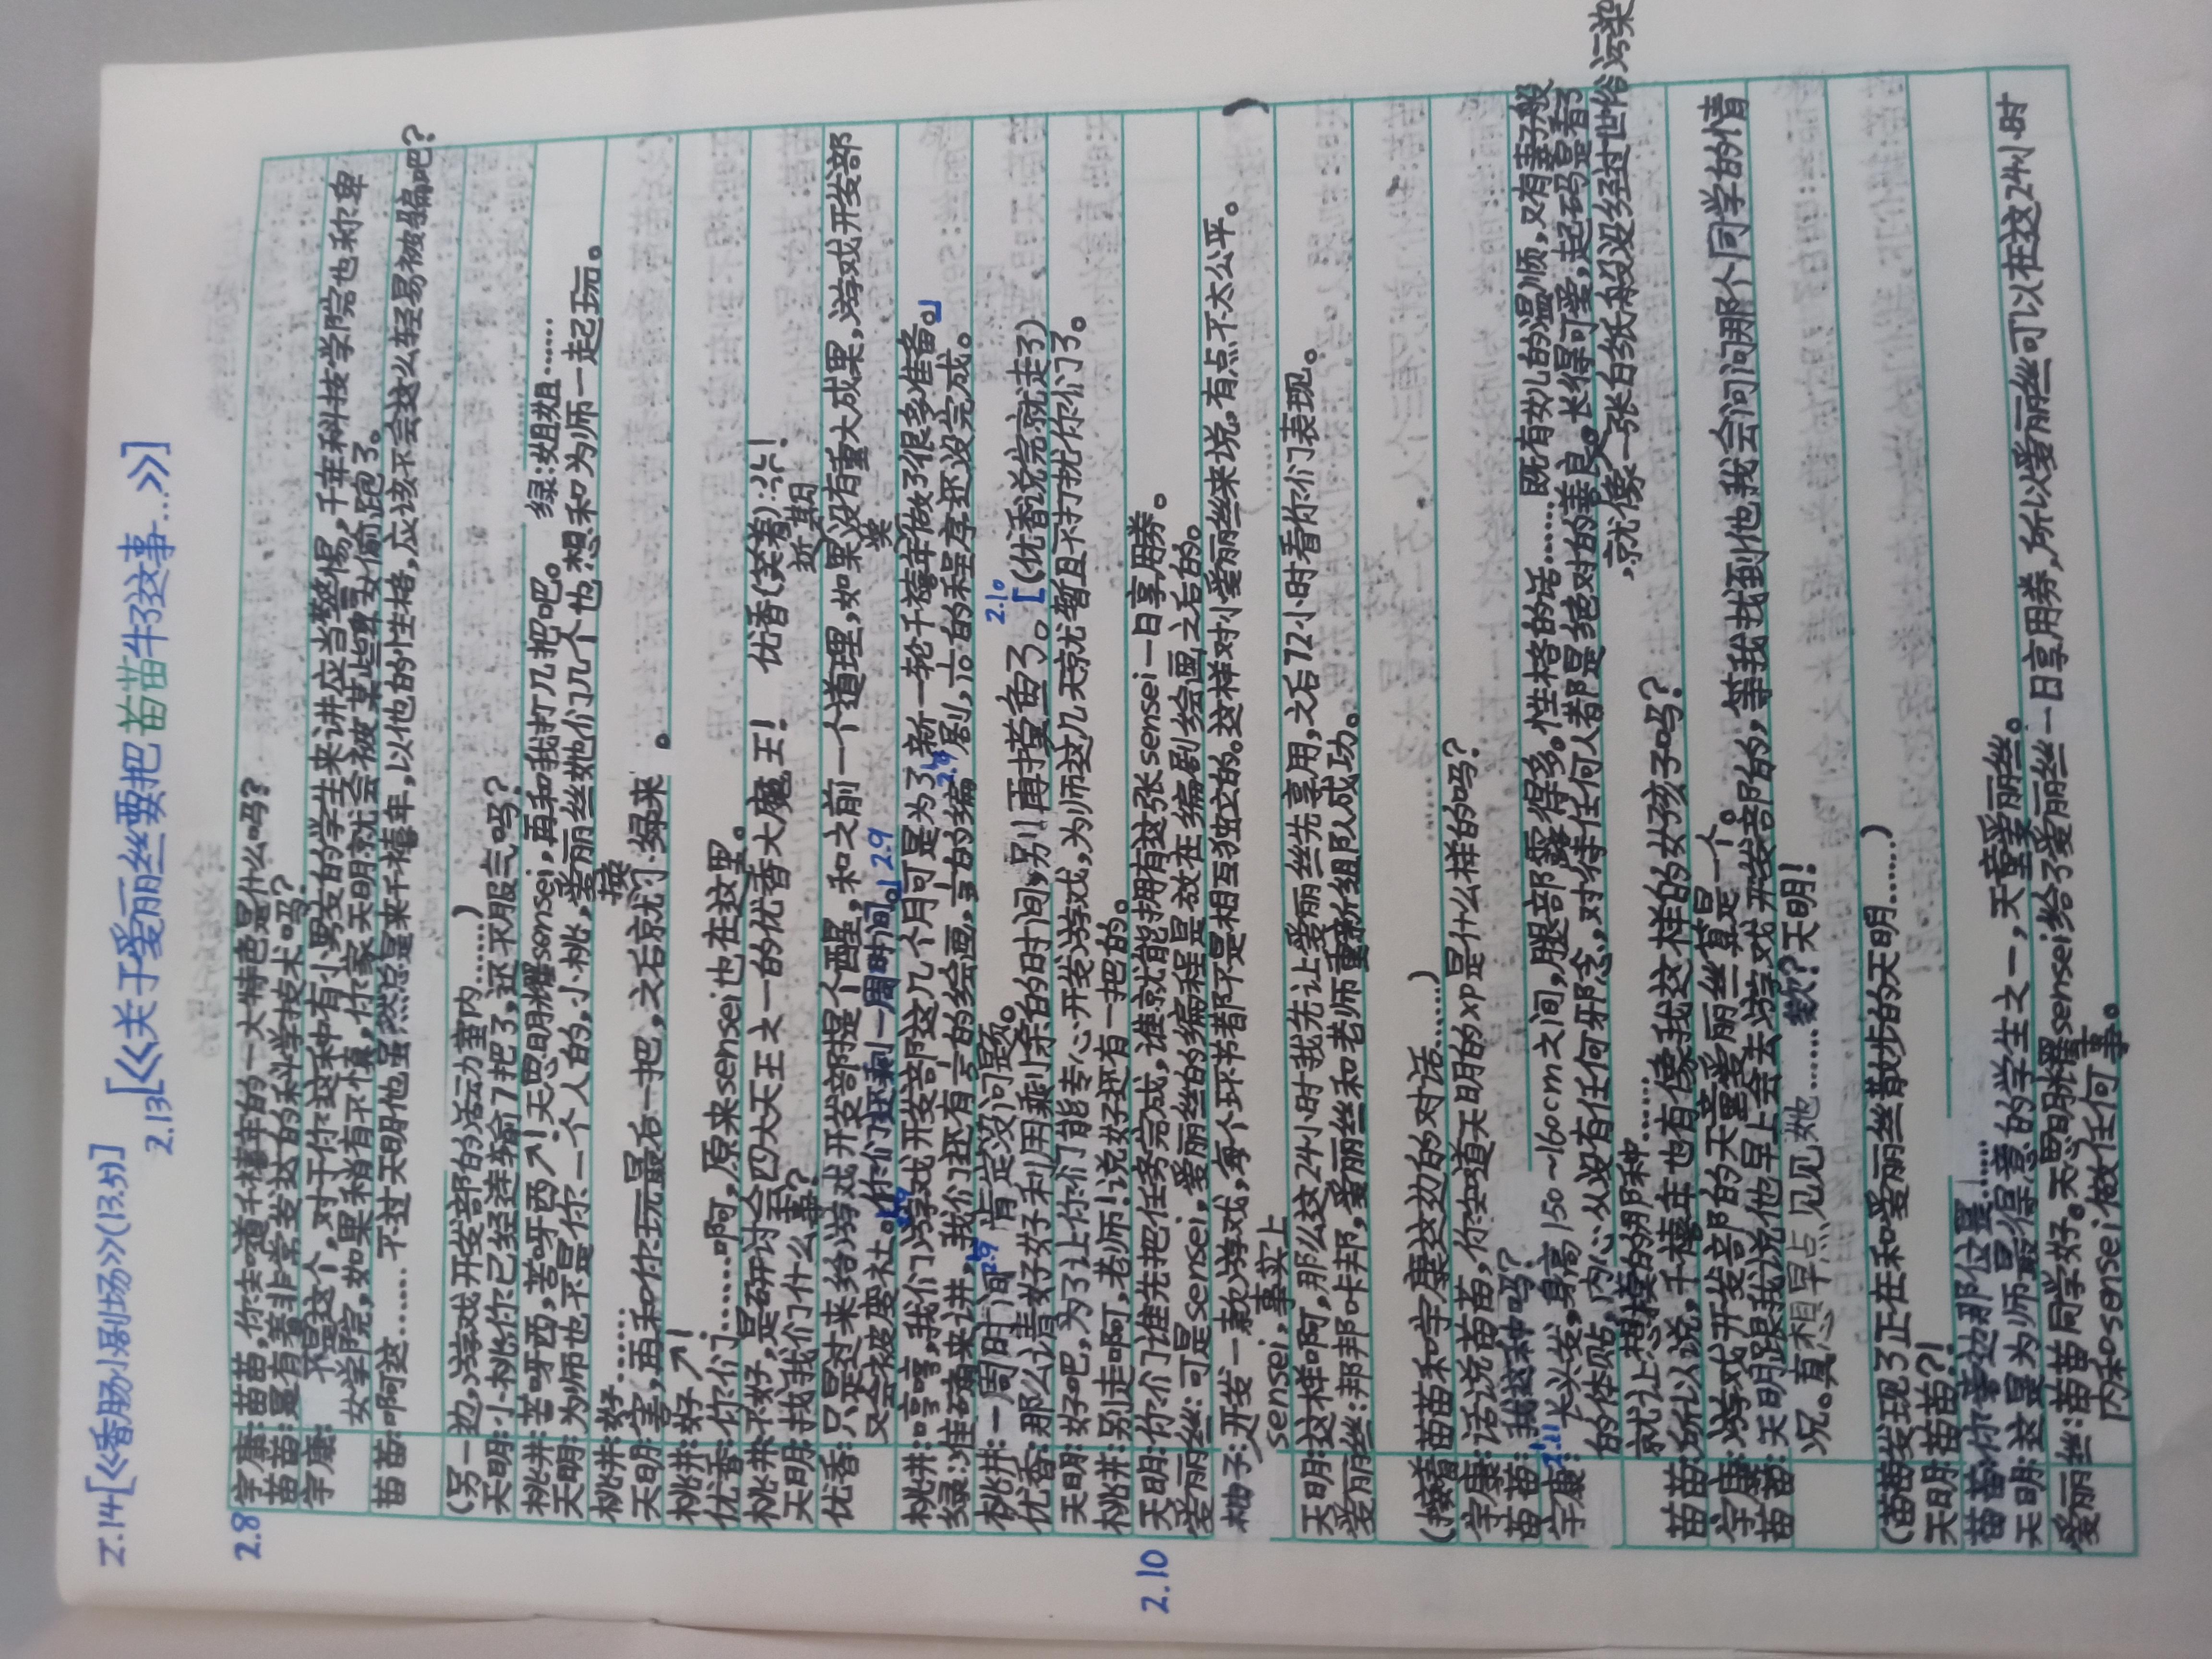 2.14[《香肠小剧场》(13.5)]
2.13[《关于爱丽丝要把苗苗牛了这事...》]
2.8
宇康:苗苗,你知道千禧年的一大特色是什么吗?
苗苗:是有着非常发达的科学技术吗?
宇康:不是这个,对于你这种有小男友的学生来讲应当警惕,千年科技学院也称卑
女学院,如果稍有不慎,你家天明就会被某些卑女偷跑了。
苗苗:啊这……不过天明他虽然总是来千禧年,以他的性格,应该不会这么轻易被骗吧?
(另一边,游戏开发部的活动室内……)
天明:小桃你已经连输了7把了,还不服气吗?
桃井:苦呀西,苦呀西↗!天思明耀sensei,再和我打几把吧。 绿:姐姐……
天明:为师也不是你一个人的,小桃,爱丽丝她们几个也想和为师一起玩。
桃井:好……
天明:害,再和你玩最后一把,之后就换绿来。
桃井:好↗!
优香:你们………啊,原来sensei也在这里。
桃井:不好,是研讨会四大天王之一的优香大魔王! 优香(笑着):汏!
天明:找我们什么事?
优香:只是过来给游戏开发部提个醒,和之前一个道理,如果没有重大成果,游戏开发部
又会被废社。你们还剩一周时间。」2.9
桃井:哼哼,我们游戏开发部这几个月可是为了新一轮千禧年做了很多准备。」
绿:准确来讲,我们还有 的绘画, 的编剧, 的程序还没完成。
桃井:一周时间肯定没问题。
优香:那么请好好利用剩余的时间,别再摸鱼了。[(优香说完就走了)
2.10
天明:好吧,为了让你们能专心开发游戏,为师这几天就暂且不打扰你们了。
桃井:别走啊,老师!说好还有一把的。
2.10
天明:你们谁先把任务完成,谁就能拥有这张sensei一日享用券。
爱丽丝:可是sensei,爱丽丝的编程是放在编剧绘画之后的。
柚子:开发一款游戏,每个环节都不是相互独立的。这样对小爱丽丝来说,有点不太公平。
sensei,事实上
天明:这样啊,那么这24小时我先让爱丽丝先享用,之后72小时看你们表现。
爱丽丝:邦邦咔邦,爱丽丝和老师重新组队成功。
(接着苗苗和宇康这边的对话……)
宇康:话说苗苗,你知道天明的xp是什么样的吗?
苗苗:我这种吗?
2.11
宇康:长头发,身高150~160cm之间,腿部露得多。性格的话………既有女儿的温顺,又有妻子般
的体贴,内心从没有任何邪念,对待任何人都是绝对的善良。长得可爱,起码是看了
就让想接的那种…… ,就像一张白纸般没经过世俗污染
苗苗:所以说,千禧年也有像我这样的女孩子吗?
宇康:游戏开发部的天童爱丽丝算是一个。
苗苗:天明跟我说他早上会去游戏开发部的,等我找到他我会问问那个同学的情
况。真想早点见见她……欸?天明!
(苗苗发现了正在和爱丽丝散步的天明……)
天明:苗苗?!
苗苗:你旁边那位是……
天明:这是为师最得意的学生之一,天童爱丽丝。
爱丽丝:苗苗同学好。天思明耀sensei给了爱丽丝一日享用券,所以爱丽丝可以在这24小时
内和sensei做任何事。